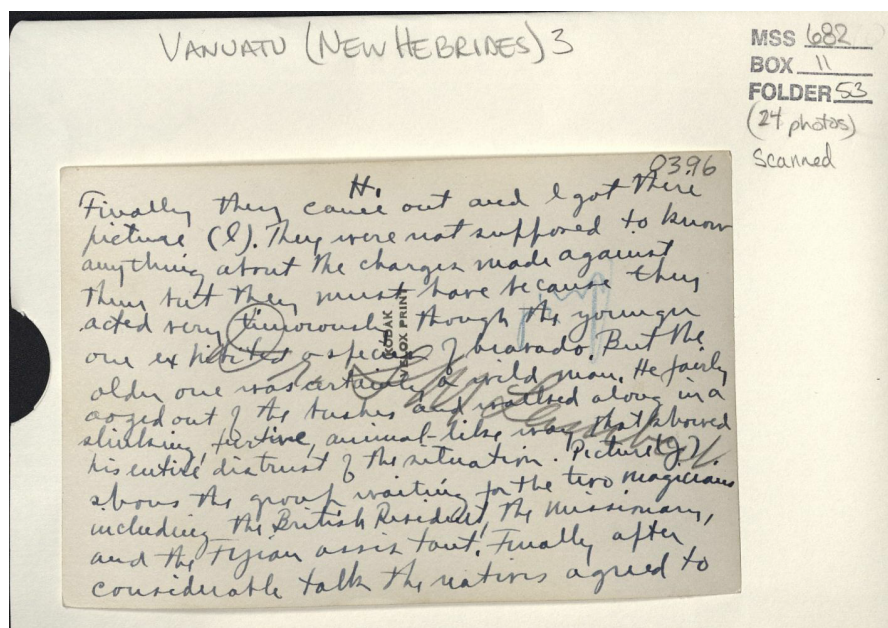 VANUATU (NEW HEBRIDES) 3
MSS 682
BOX 11
FOLDER 53
(24 photos)
Scanned
0396
H.
Finally they came out and I got there
picture (l). They were not supposed to know
anything about the charges made against
them but they must have because they
acted very timorously though the younger
one exhibited a species of bravado. But the
older one was certainly a wild man. He fairly
oozed out of the bushes and walked along in a
slinking, furtive, animal-like way that showed
his entire distrust of the situation. Picture (g)
shows the group waiting for the two magicians
including the British Resident, the missionary,
and the Fijian assistant. Finally after
considerable talk the natives agreed to
KODAK
VELOX PRINT